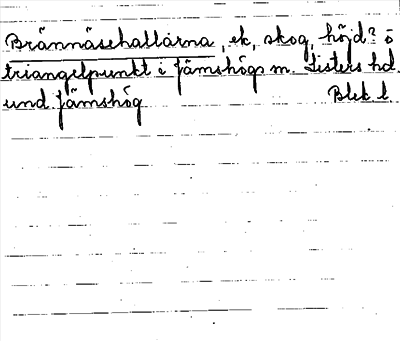 Brännåsehallarna, ek, skog, höjd? ö
triangelpunkt i Jämshögs m. Listers hd.
und. Jämshög Blek. l